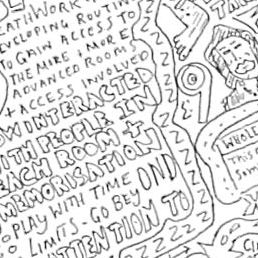 EATHWORK
EVELOPING ROUTINE
TO GAIN ACCESS TO
THE MORE + MORE
ADVANCED ROOMS
+ ACCESS INVOLVED
OW INTERACTED
WITH PEOPLE IN
EACH ROOM +
MEMORISATION
O PLAY WITH TIME
LIMITS - GO BEY OND
ATTENTION TO
WHOLE
THIS
SOM